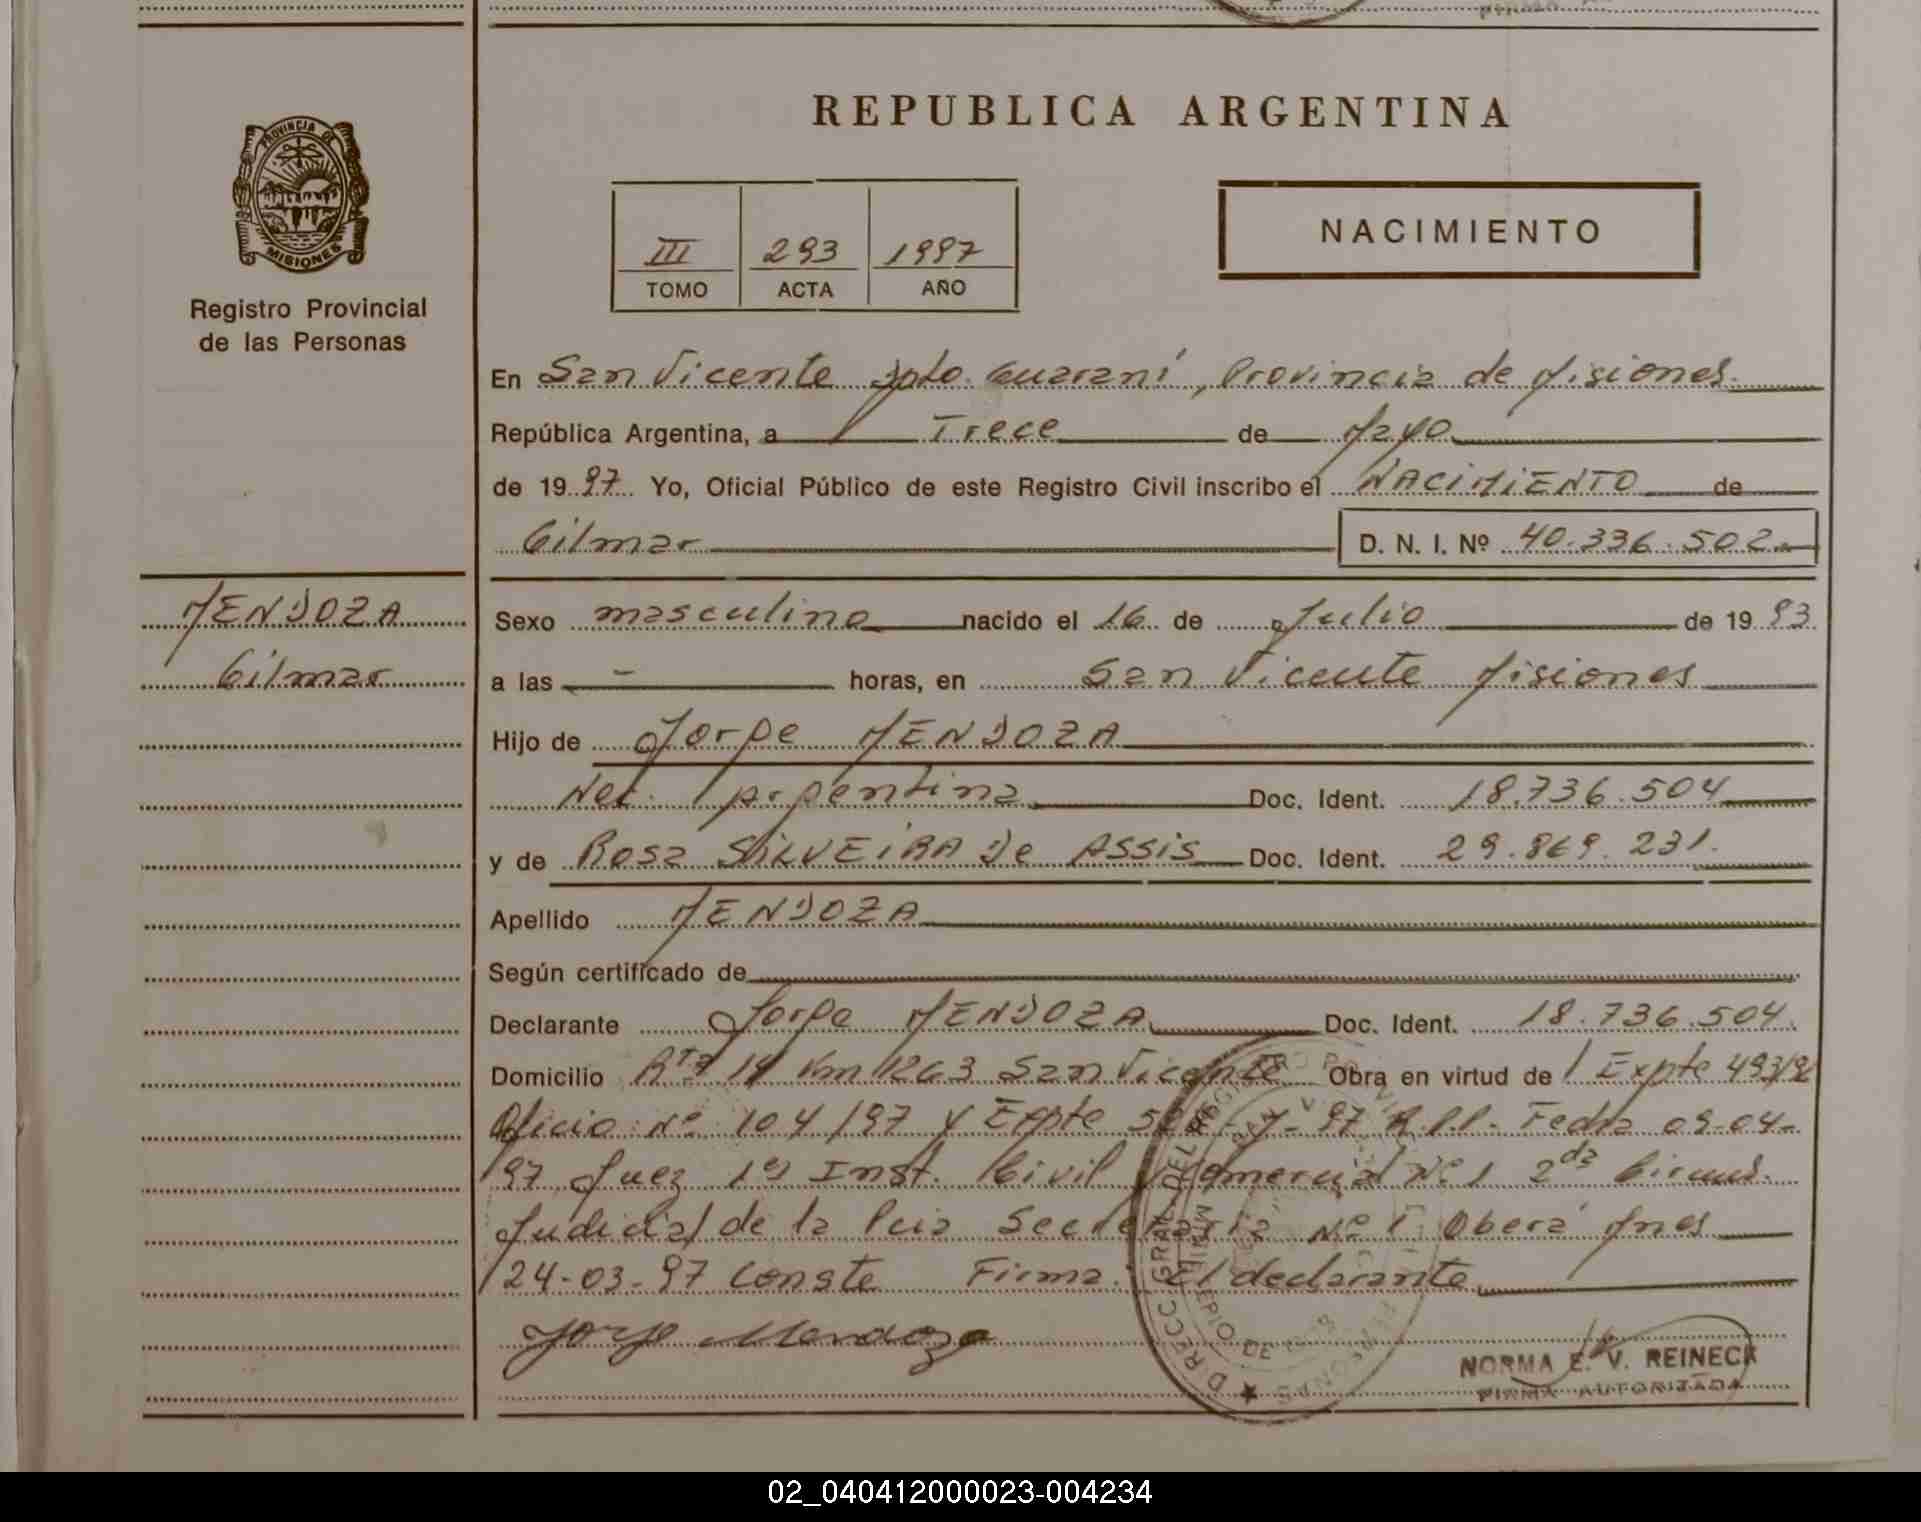 REPUBLICA ARGENTINA
PROVINCIA DE
MISIONES
Registro Provincial
de las Personas
III 293 1997
TOMO ACTA AÑO
NACIMIENTO
En San Vicente Dpto. Guaraní, Provincia de Misiones.
República Argentina, a Trece de Mayo
de 19 97 Yo, Oficial Público de este Registro Civil inscribo el NACIMIENTO de
Gilmar D. N. I. Nº 40.336.502.
MENDOZA
Gilmar
Sexo masculino nacido el 16 de Julio de 19 93
a las - horas, en San Vicente Misiones
Hijo de Jorge MENDOZA
Nac. Argentina Doc. Ident. 18.736.504
y de Rosa SILVEIRA De ASSIS Doc. Ident. 29.869.231.
Apellido MENDOZA
Según certificado de
Declarante Jorge MENDOZA Doc. Ident. 18.736.504.
Domicilio Rta 14 Km 1263 San Vicente Obra en virtud de Expte 493/9
Oficio Nº 104/97 y Expte 97 R.P.P. Fecha 09-04-
97 Juez 1º Inst. Civil Comercial Nº 1 2da Circuns.
Judicial de la Pcia Secretaria Nº 1 Oberá Mnes
24-03-97 Conste Firma: El declarante
Jorge Mendoza
NORMA E. V. REINECK
FIRMA AUTORIZADA
02_040412000023-004234